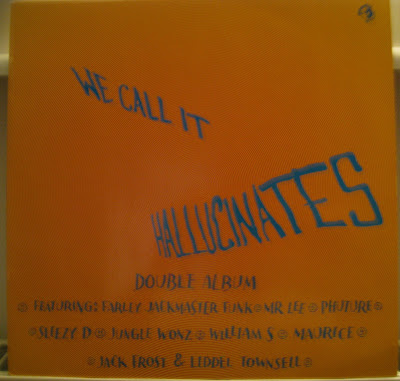 WE CALL IT
HALLUCINATES
DOUBLE ALBUM
FEATURING: FARLEY JACKMASTER FUNK MR LEE PHUTURE
SLEEZY D JUNGLE WONZ WILLIAM S MAURICE
JACK FROST & LIDDEL TOWNSELL